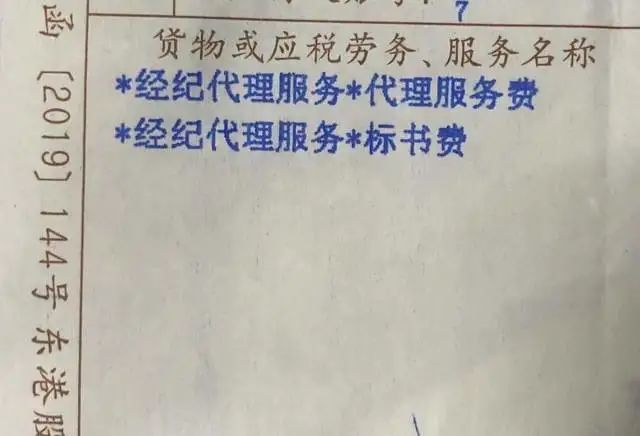 7
货物或应税劳务、服务名称
*经纪代理服务*代理服务费
*经纪代理服务*标书费
函〔2019〕144号东港股